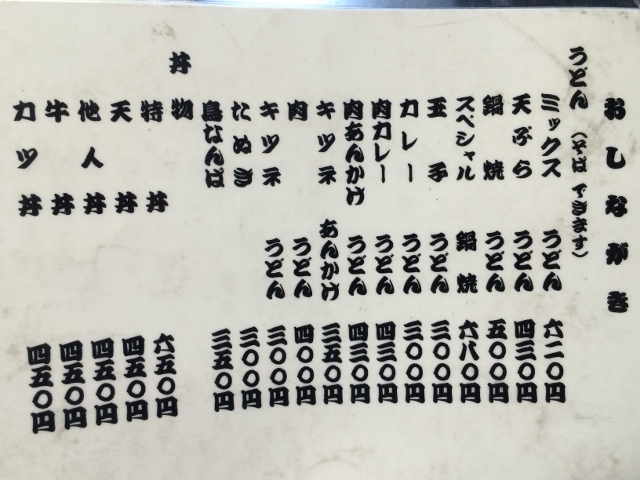 おしながき
うどん（そばできます）
ミックスうどん 六二〇円
天ぷらうどん 四三〇円
鍋焼うどん 五〇〇円
スペシャル鍋焼 六八〇円
玉子うどん 三〇〇円
カレーうどん 三〇〇円
肉カレーうどん 四三〇円
肉あんかけうどん 四三〇円
キツネあんかけ 三五〇円
肉うどん 四〇〇円
キツネうどん 三〇〇円
たぬき 三〇〇円
鳥なんば 三五〇円
丼物
特丼 六五〇円
天丼 四五〇円
他人丼 四五〇円
牛丼 四五〇円
カツ丼 四五〇円